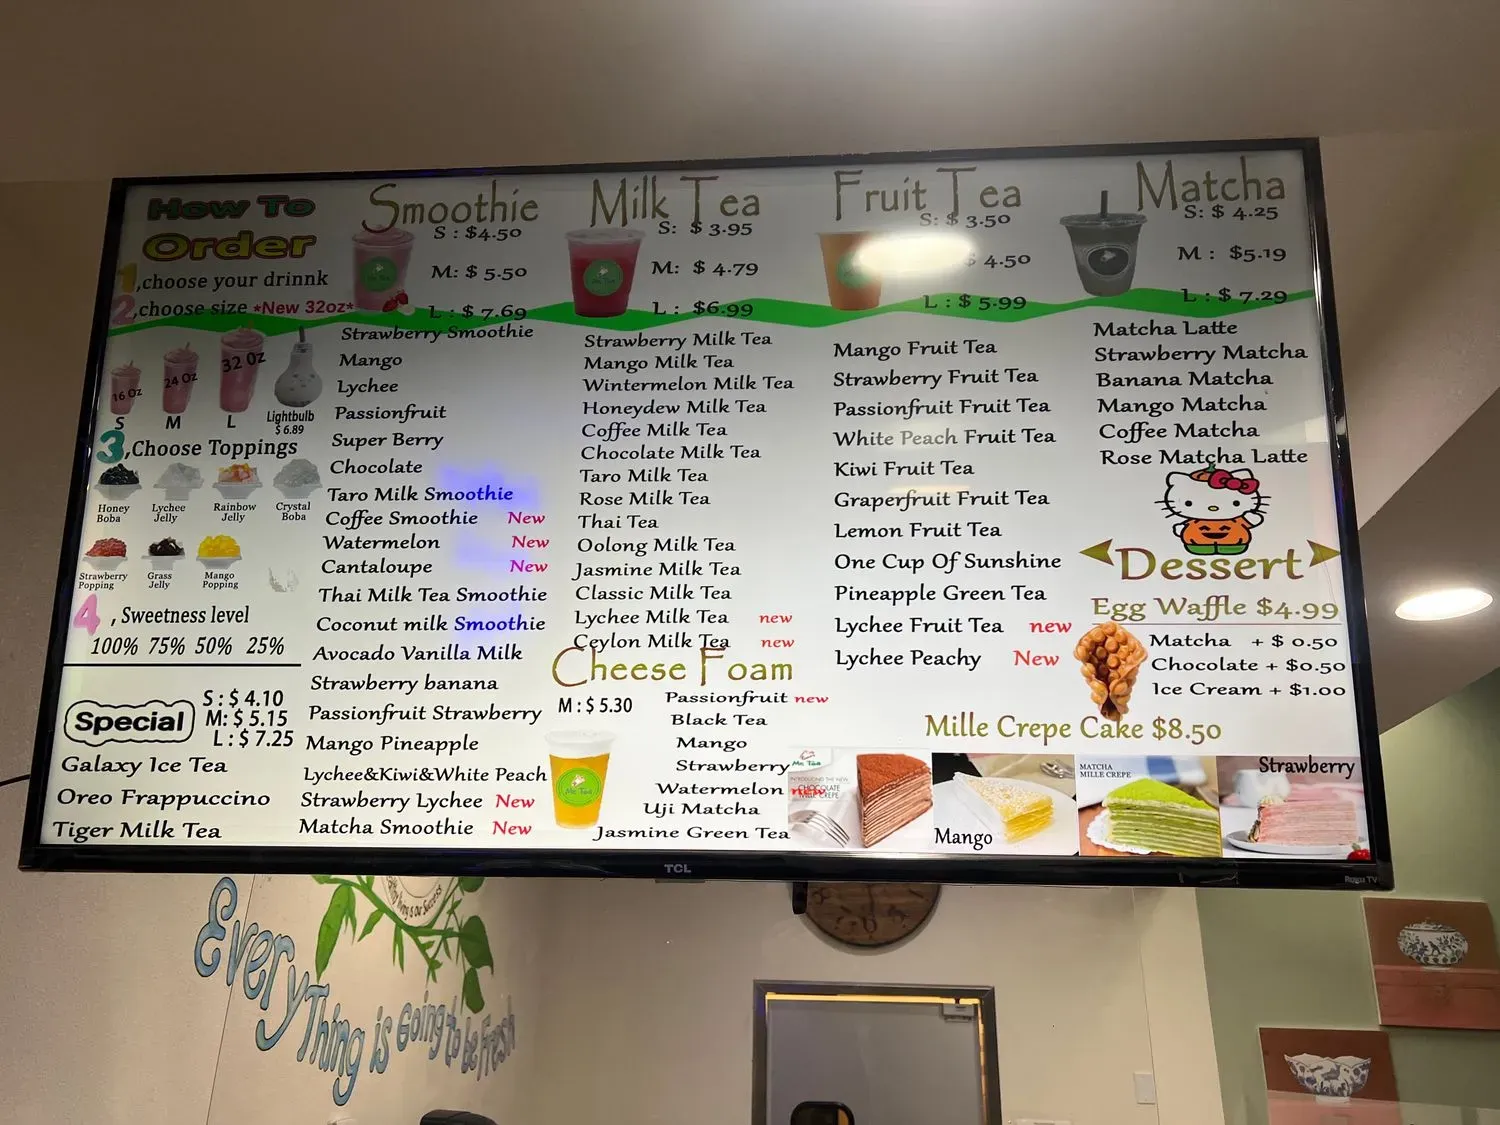 How To
Order
1,choose your drinnk
2,choose size *New 32oz*
16 Oz
24 Oz
32 Oz
S
M
L
Lightbulb
$ 6.89
3,Choose Toppings
Honey
Boba
Lychee
Jelly
Rainbow
Jelly
Crystal
Boba
Strawberry
Popping
Grass
Jelly
Mango
Popping
4, Sweetness level
100% 75% 50% 25%
Special
S : $ 4.10
M: $ 5.15
L : $ 7.25
Galaxy Ice Tea
Oreo Frappuccino
Tiger Milk Tea
Smoothie
S : $4.50
M: $ 5.50
L : $ 7.69
Strawberry Smoothie
Mango
Lychee
Passionfruit
Super Berry
Chocolate
Taro Milk Smoothie
Coffee Smoothie New
Watermelon New
Cantaloupe New
Thai Milk Tea Smoothie
Coconut milk Smoothie
Avocado Vanilla Milk
Strawberry banana
Passionfruit Strawberry
Mango Pineapple
Lychee&Kiwi&White Peach
Strawberry Lychee New
Matcha Smoothie New
Milk Tea
S: $ 3.95
M: $ 4.79
L : $6.99
Strawberry Milk Tea
Mango Milk Tea
Wintermelon Milk Tea
Honeydew Milk Tea
Coffee Milk Tea
Chocolate Milk Tea
Taro Milk Tea
Rose Milk Tea
Thai Tea
Oolong Milk Tea
Jasmine Milk Tea
Classic Milk Tea
Lychee Milk Tea new
Ceylon Milk Tea new
Cheese Foam
M : $ 5.30
Mc Tea
Passionfruit new
Black Tea
Mango
Strawberry
Watermelon new
Uji Matcha
Jasmine Green Tea
Fruit Tea
S: $ 3.50
$ 4.50
L : $ 5.99
Mango Fruit Tea
Strawberry Fruit Tea
Passionfruit Fruit Tea
White Peach Fruit Tea
Kiwi Fruit Tea
Graperfruit Fruit Tea
Lemon Fruit Tea
One Cup Of Sunshine
Pineapple Green Tea
Lychee Fruit Tea new
Lychee Peachy New
Matcha
S: $ 4.25
M : $5.19
L : $ 7.29
Matcha Latte
Strawberry Matcha
Banana Matcha
Mango Matcha
Coffee Matcha
Rose Matcha Latte
Dessert
Egg Waffle $4.99
Matcha + $ 0.50
Chocolate + $0.50
Ice Cream + $1.00
Mille Crepe Cake $8.50
Mc Tea
INTRODUCING THE NEW
CHOCOLATE
MILLE CREPE
Mango
MATCHA
MILLE CREPE
Strawberry
TCL
Roku TV
EveryThing is Going to be Fresh